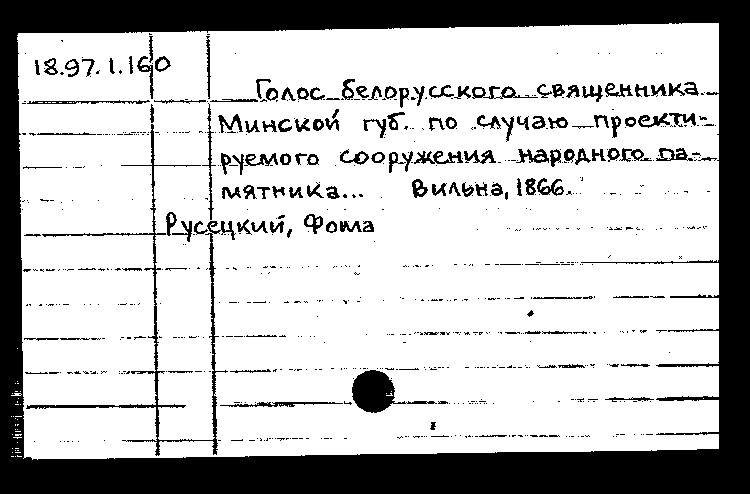 18.97.1.160
Голос белорусского священника
Минской губ. по случаю проекти-
руемого сооружения народного па-
мятника... Вильна, 1866.
Русецкий, Фома